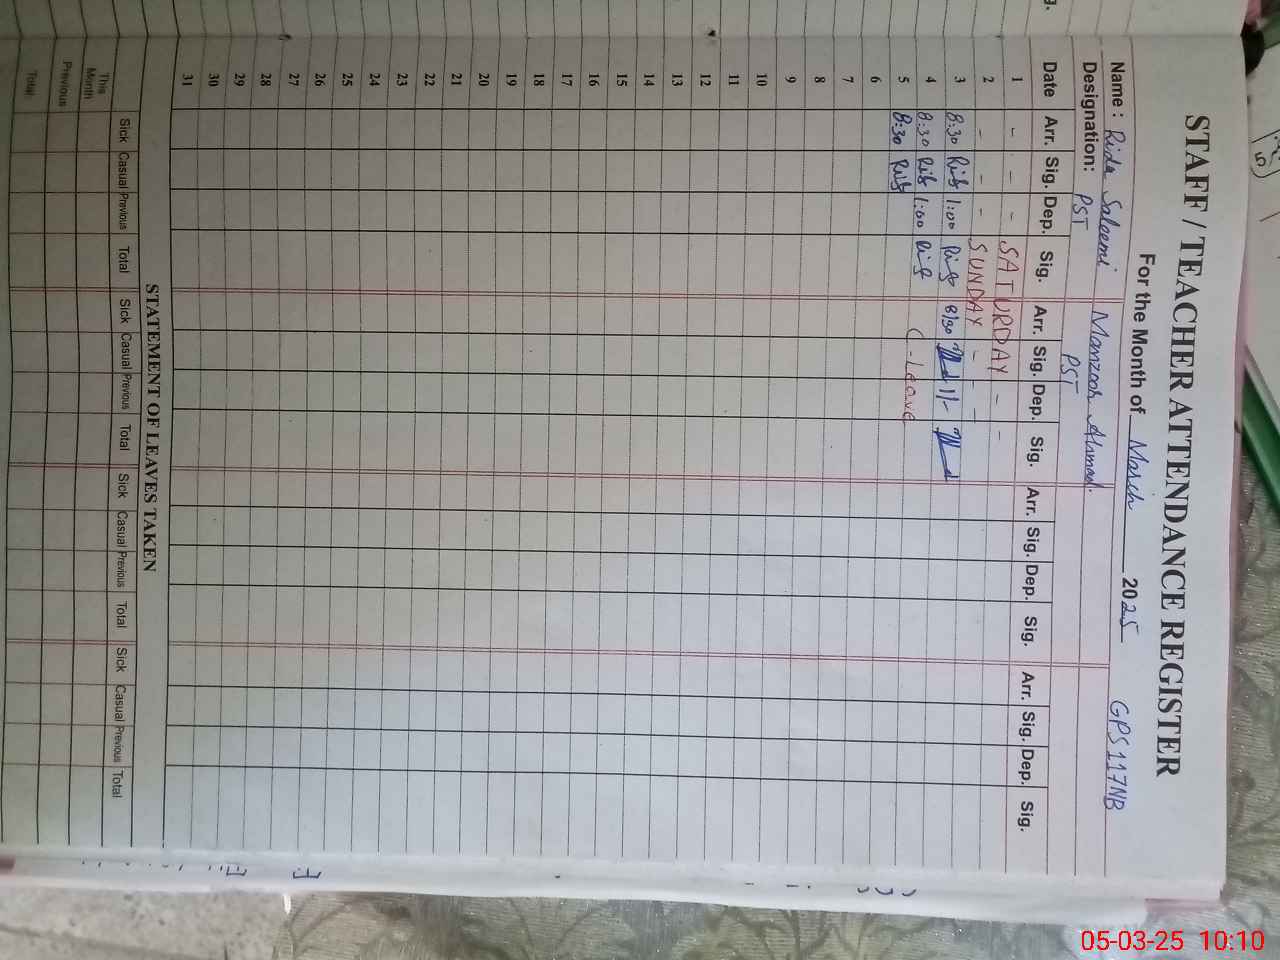 STAFF / TEACHER ATTENDANCE REGISTER
For the Month of March 2025 GPS 117NB
Name : Rida Saleemi Manzoor Ahmad.
Designation: PST PST
Date Arr. Sig. Dep. Sig. Arr. Sig. Dep. Sig. Arr. Sig. Dep. Sig. Arr. Sig. Dep. Sig.
1 - - - SATURDAY - -
2 - - - SUNDAY - -
3 8:30 1:00 8/30 1/-
4 8:30 1:00
5 8:30 C-Leave
6
7
8
9
10
11
12
13
14
15
16
17
18
19
20
21
22
23
24
25
26
27
28
29
30
31
STATEMENT OF LEAVES TAKEN
Sick Casual Previous Total Sick Casual Previous Total Sick Casual Previous Total Sick Casual Previous Total
This Month
Previous
Total
05-03-25 10:10